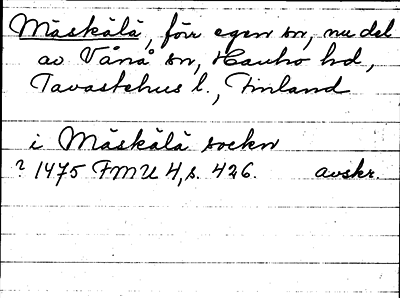 Mäskälä, förr egen sn, nu del
av Vånå sn, Hauho hd,
Tavastehus l., Finland
i Mäskälä sockn
? 1475 FMU 4, s. 426. avskr.